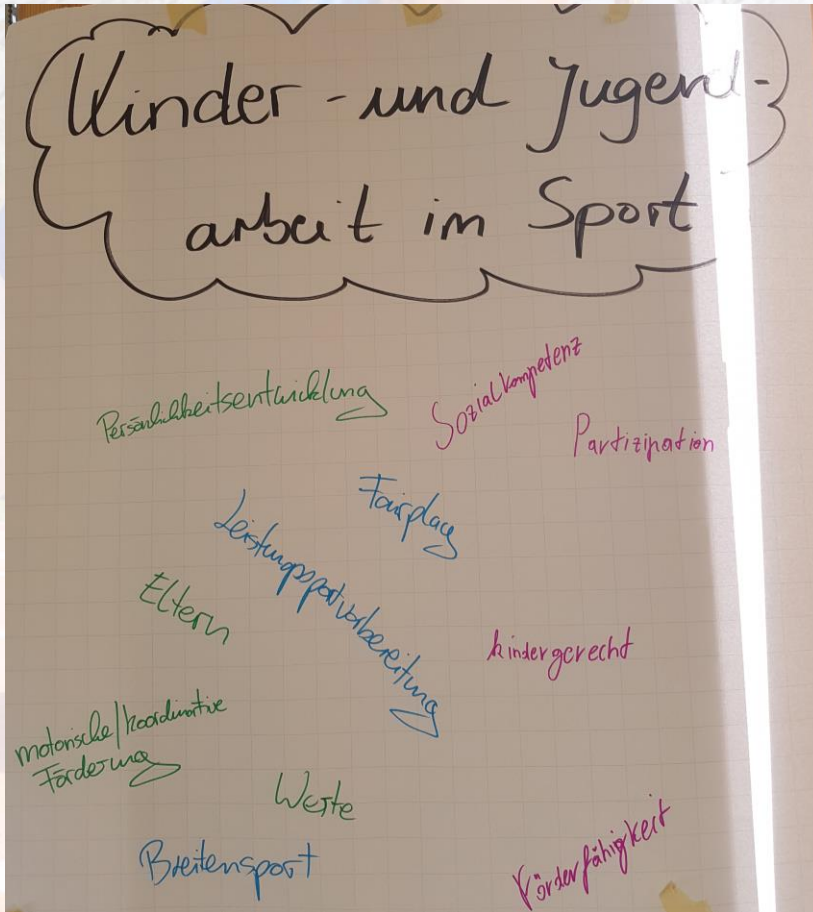 Kinder - und Jugend-
arbeit im Sport
Persönlichkeitsentwicklung
Sozialkompetenz
Partizipation
Fairplay
Leistungssportvorbereitung
Eltern
kindergerecht
motorische/koordinative
Förderung
Werte
Breitensport
Förderfähigkeit